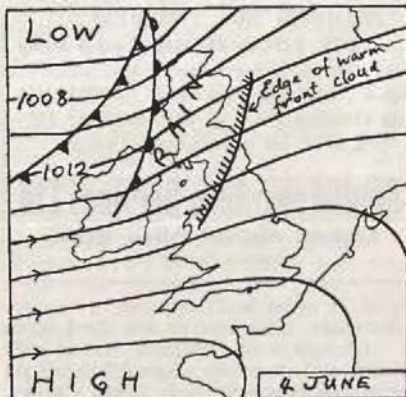 LOW
1008
1012
RAIN
Edge of warm
front cloud
HIGH
4 JUNE